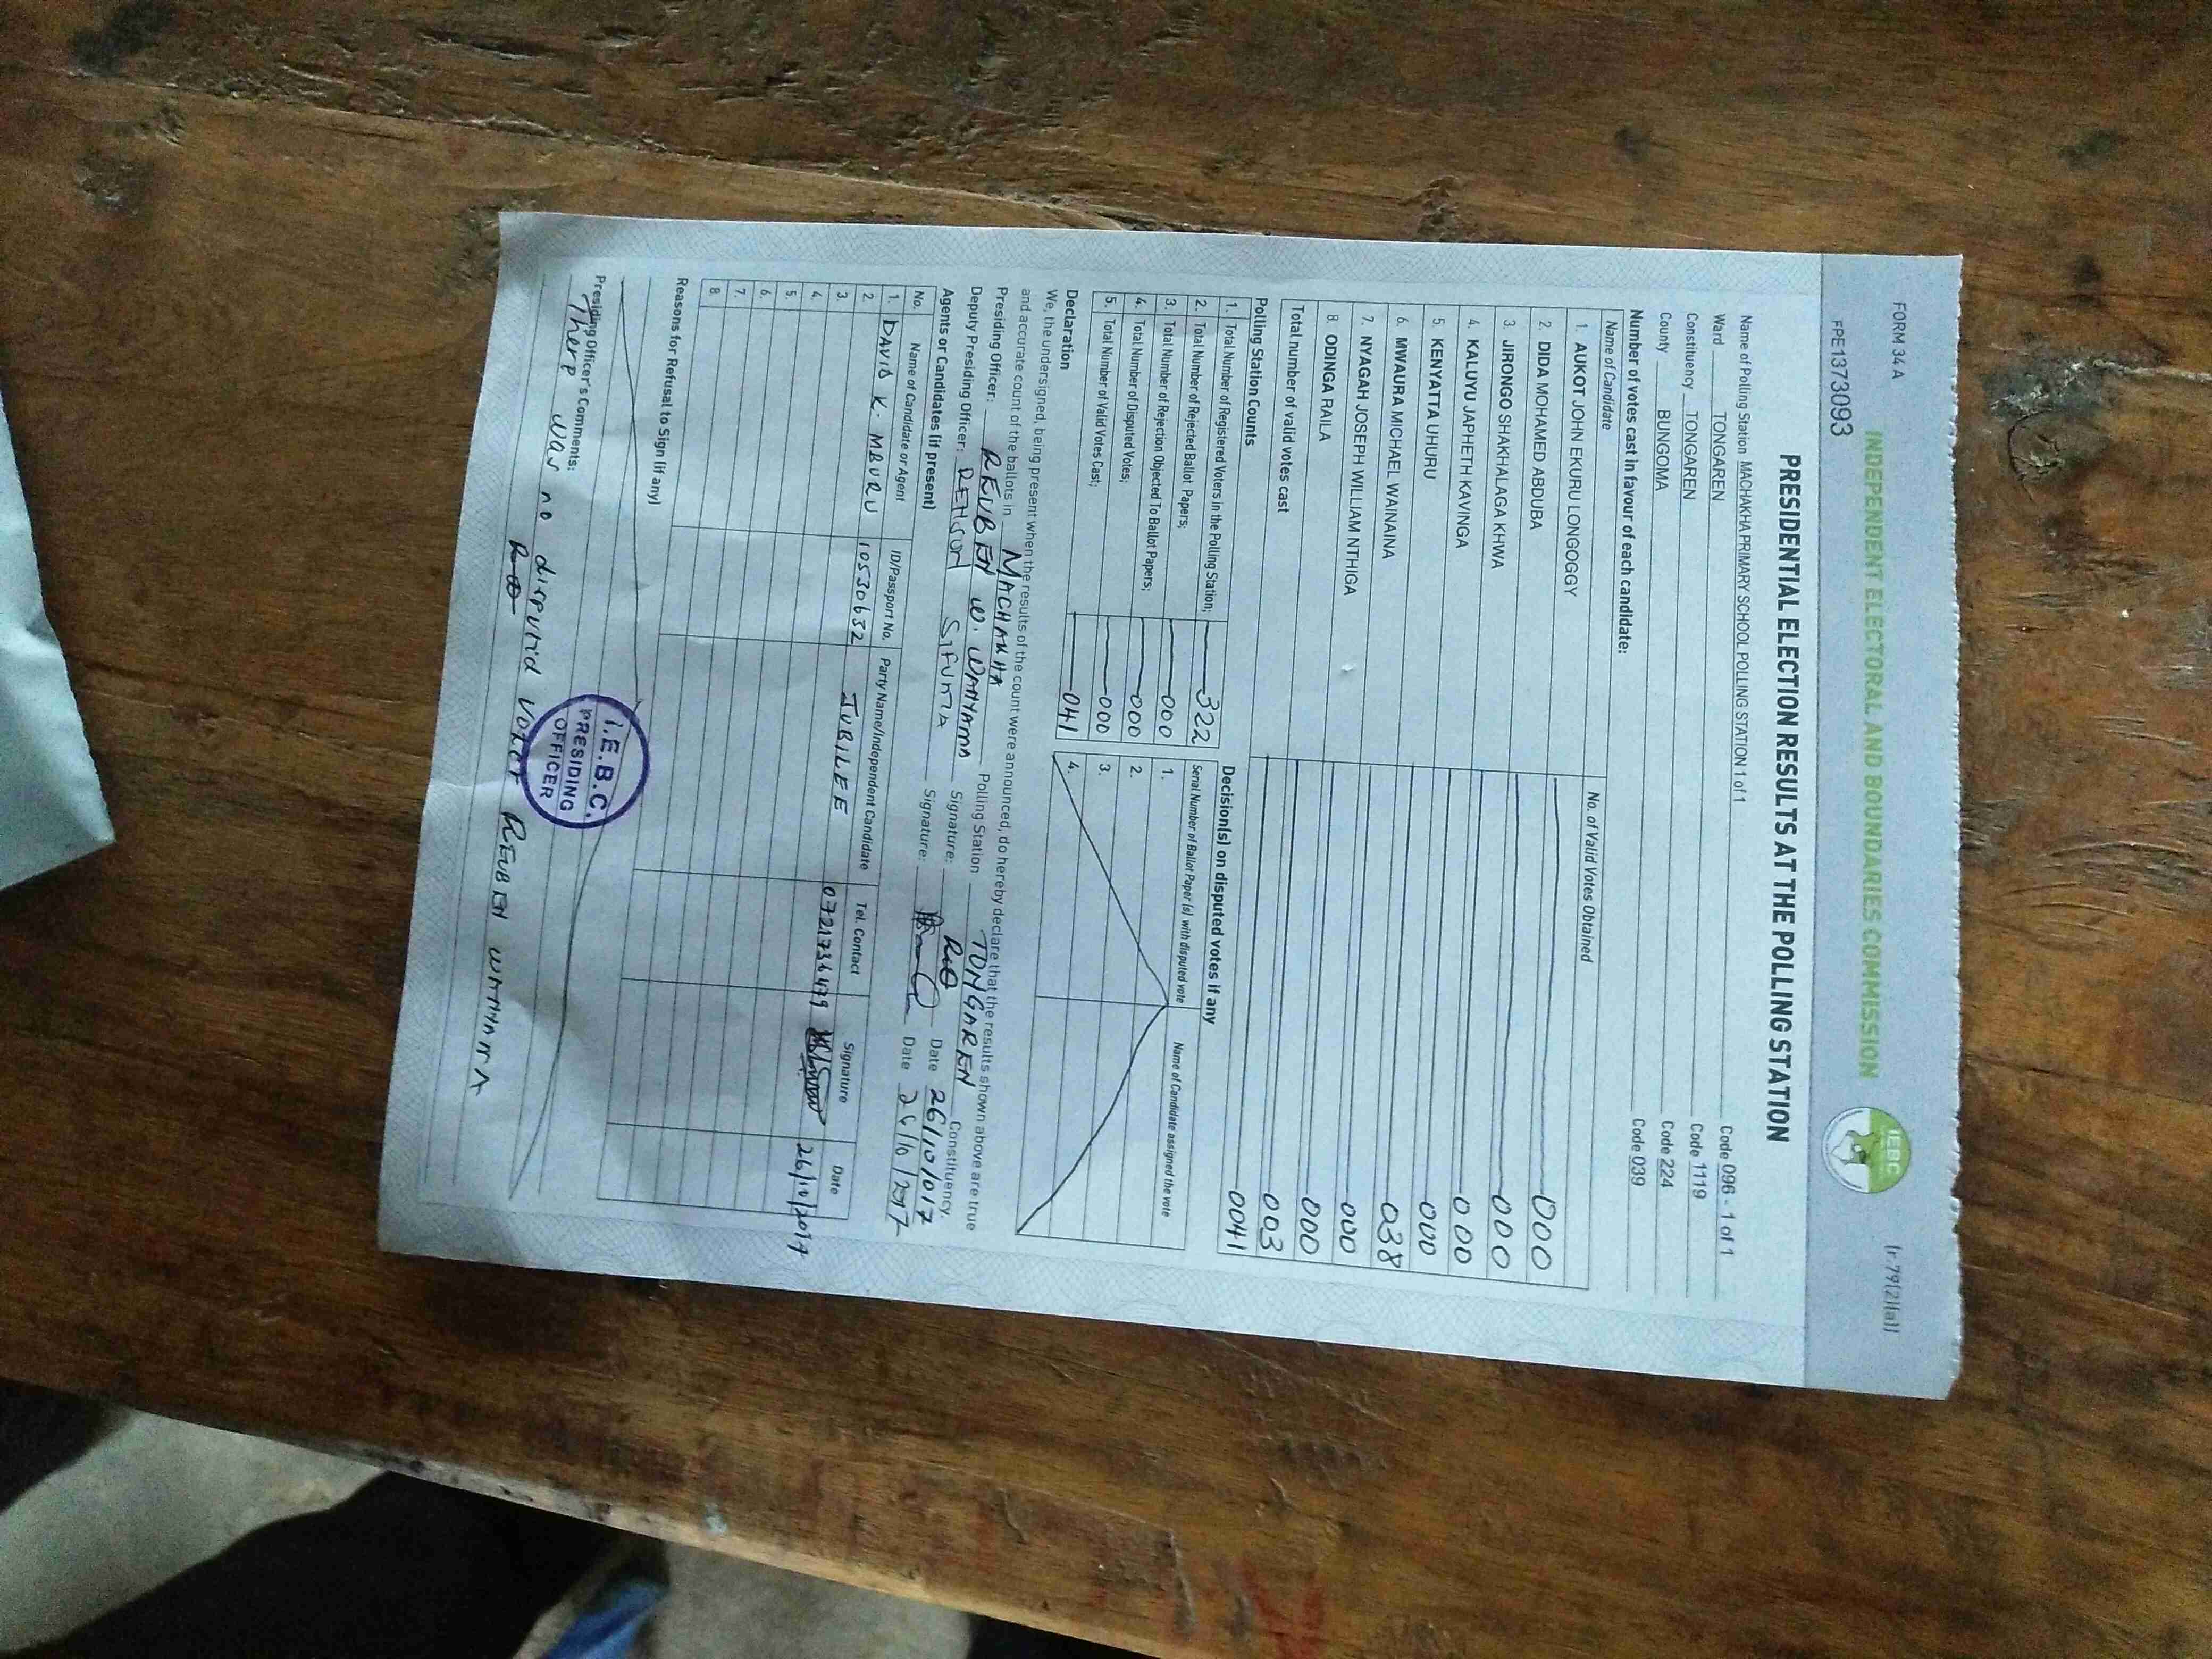 FORM 34 A
(r.79(2)(a))
INDEPENDENT ELECTORAL AND BOUNDARIES COMMISSION
IEBC
FPE1373093
PRESIDENTIAL ELECTION RESULTS AT THE POLLING STATION
Name of Polling Station MACHAKHA PRIMARY SCHOOL POLLING STATION 1 of 1 Code 096 - 1 of 1
Ward TONGAREN Code 1119
Constituency TONGAREN Code 224
County BUNGOMA Code 039
Number of votes cast in favour of each candidate:
Name of Candidate No. of Valid Votes Obtained
1. AUKOT JOHN EKURU LONGOGGY 000
2. DIDA MOHAMED ABDUBA 000
3. JIRONGO SHAKHALAGA KHWA 000
4. KALUYU JAPHETH KAVINGA 000
5. KENYATTA UHURU 038
6. MWAURA MICHAEL WAINAINA 000
7. NYAGAH JOSEPH WILLIAM NTHIGA 000
8. ODINGA RAILA 003
Total number of valid votes cast 0041
Polling Station Counts
1. Total Number of Registered Voters in the Polling Station; 322
2. Total Number of Rejected Ballot Papers; 000
3. Total Number of Rejection Objected To Ballot Papers; 000
4. Total Number of Disputed Votes; 000
5. Total Number of Valid Votes Cast; 041
Decision(s) on disputed votes if any
Serial Number of Ballot Paper (s) with disputed vote Name of Candidate assigned the vote
1.
2.
3.
4.
Declaration
We, the undersigned, being present when the results of the count were announced, do hereby declare that the results shown above are true
and accurate count of the ballots in MACHAKHA Polling Station TONGAREN Constituency.
Presiding Officer: REUBEN W. WANYAMA Signature: Date 26/10/017
Deputy Presiding Officer: REHSON SIFUMA Signature: Date 26/10/2017
Agents or Candidates (if present)
No. Name of Candidate or Agent ID/Passport No. Party Name/Independent Candidate Tel. Contact Signature Date
1. DAVID K. MBURU 10530632 JUBILEE 0721736479 26/10/2017
2.
3.
4.
5.
6.
7.
8.
Reasons for Refusal to Sign (if any)
I.E.B.C.
PRESIDING
OFFICER
Presiding Officer's Comments:
There was no disputed votes REUBEN WANYAMA